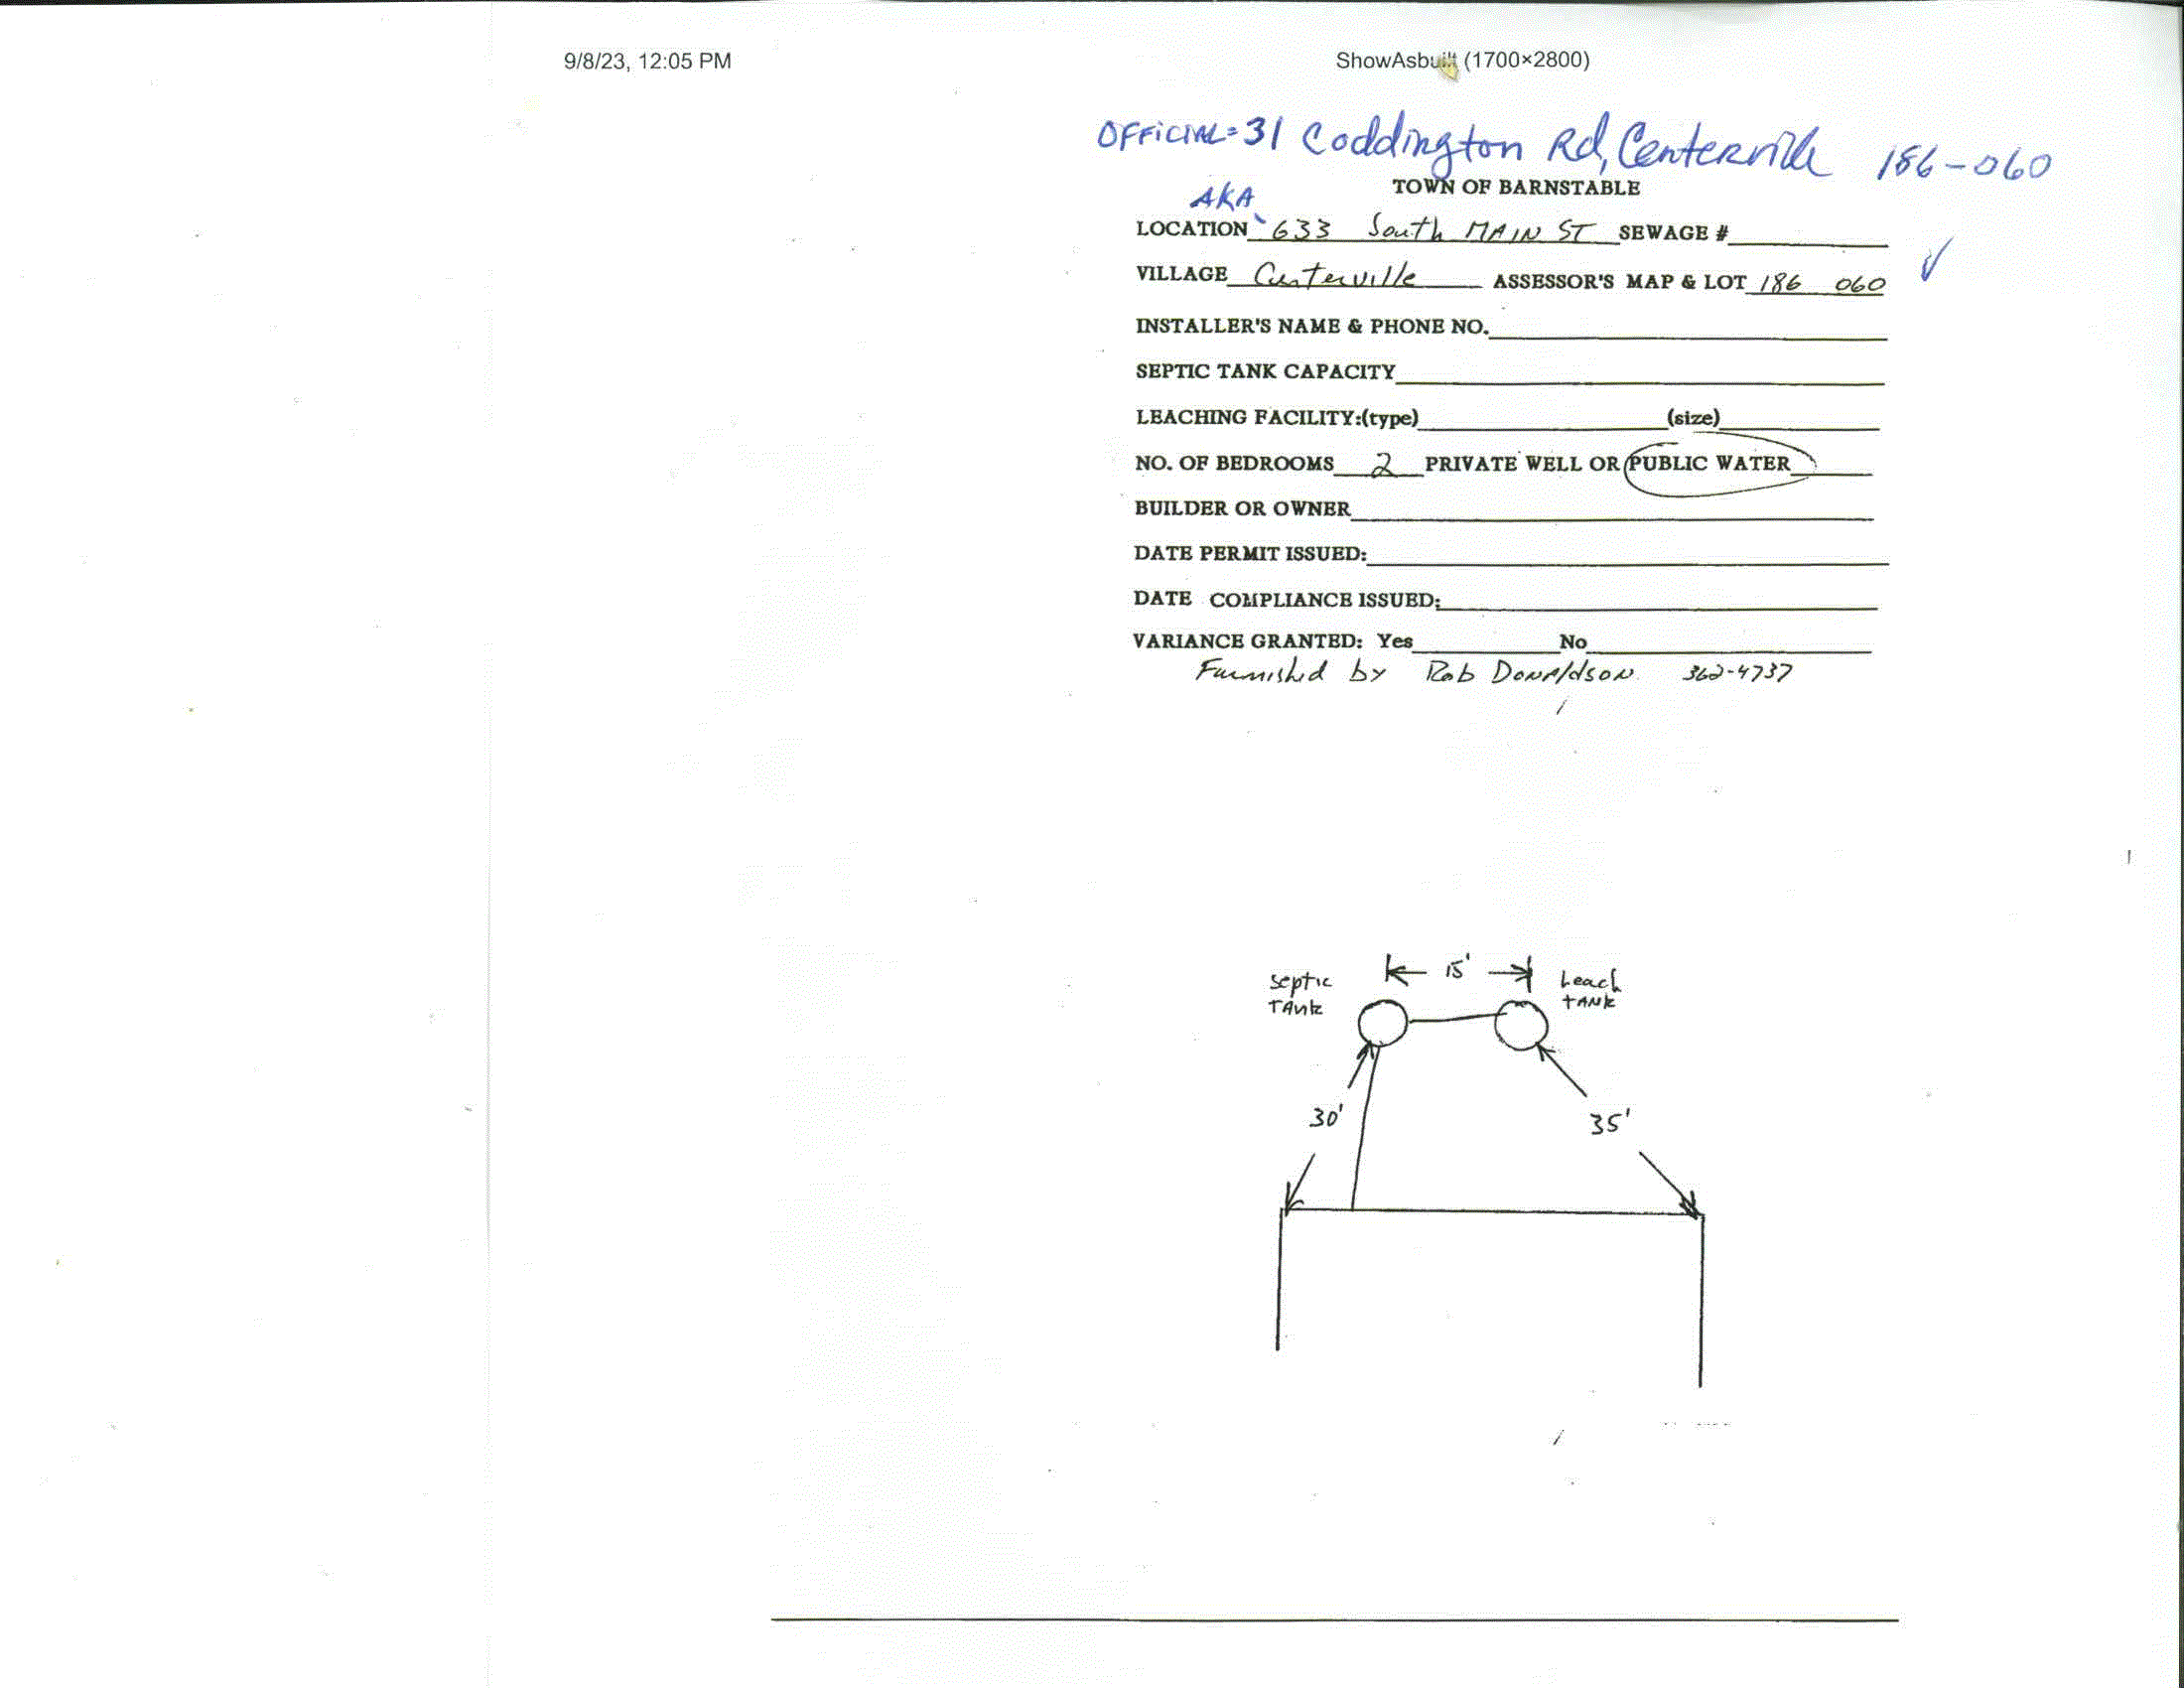 9/8/23, 12:05 PM
ShowAsbuilt (1700×2800)
OFFICIAL=31 Coddington Rd, Centerville 186-060
TOWN OF BARNSTABLE
AKA
LOCATION 633 South MAIN ST SEWAGE #
VILLAGE Centerville ASSESSOR'S MAP & LOT 186 060
INSTALLER'S NAME & PHONE NO.
SEPTIC TANK CAPACITY
LEACHING FACILITY:(type) (size)
NO. OF BEDROOMS 2 PRIVATE WELL OR PUBLIC WATER
BUILDER OR OWNER
DATE PERMIT ISSUED:
DATE COMPLIANCE ISSUED:
VARIANCE GRANTED: Yes No
Furnished by Rob Donaldson 362-4737
septic
TANK
15'
Leach
TANK
30'
35'